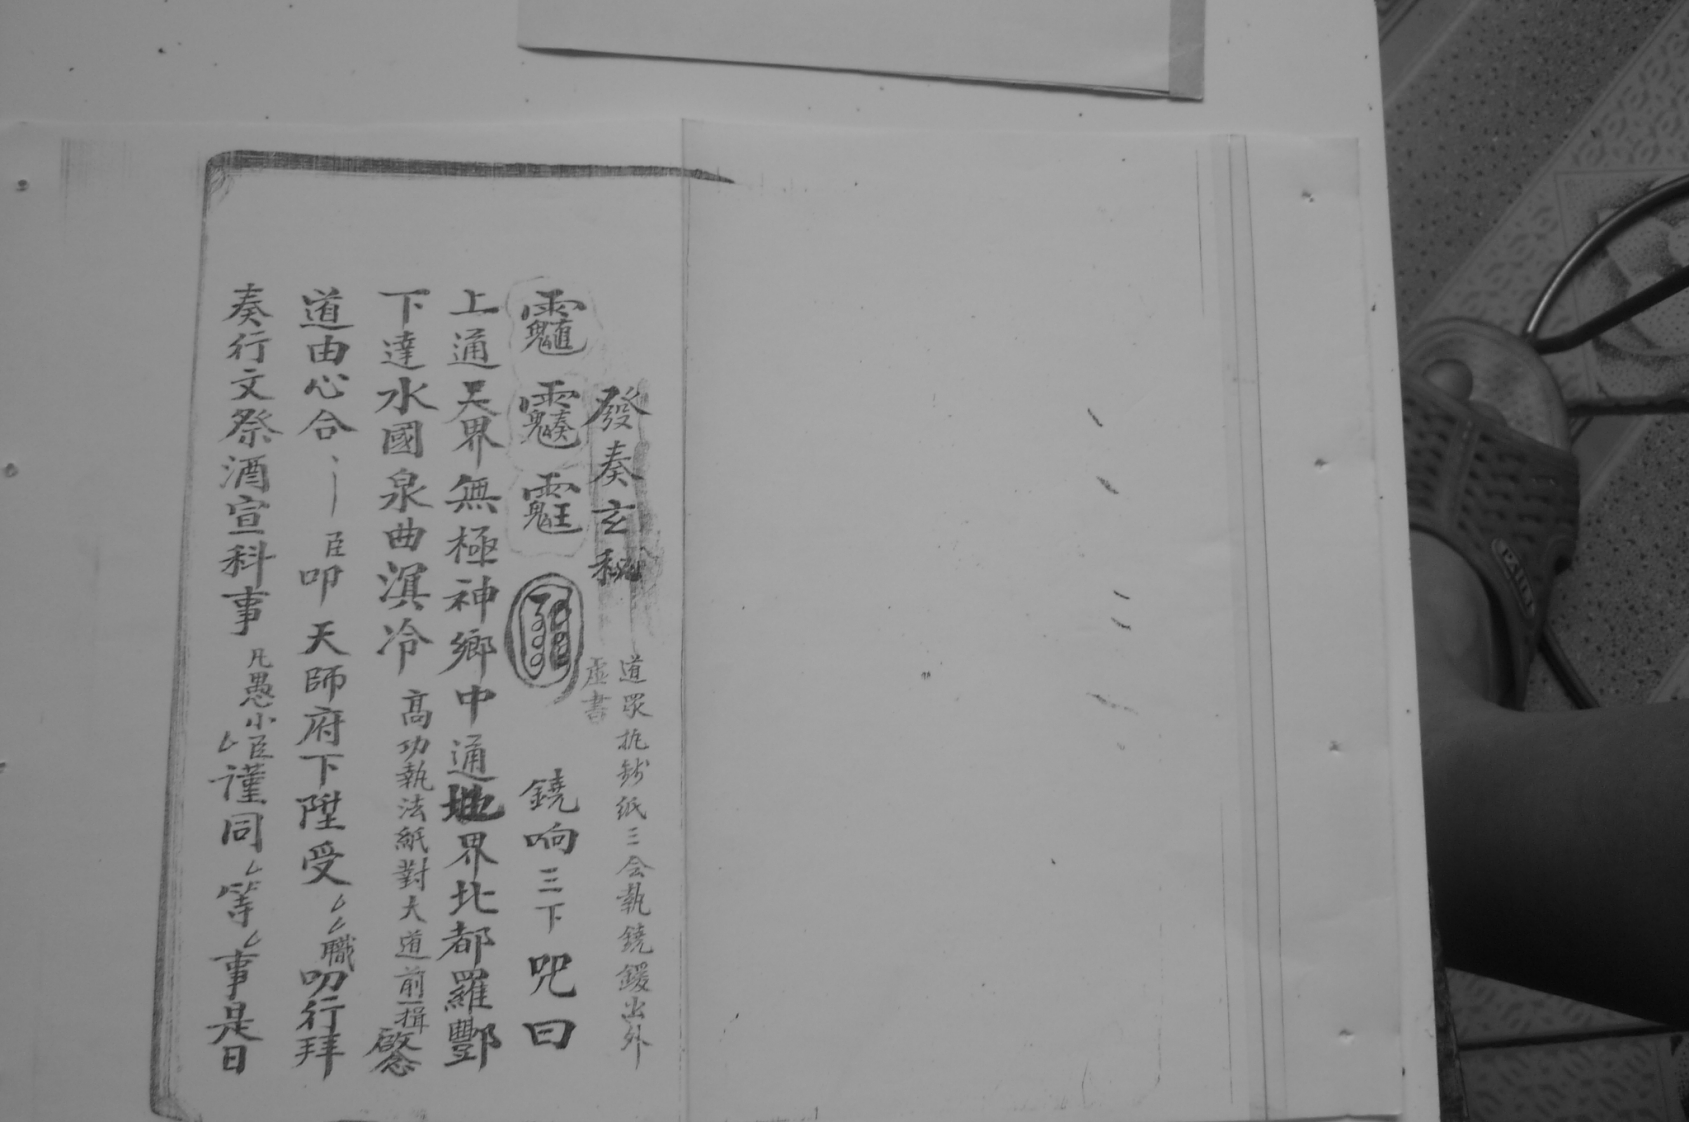 發奏玄秘
道眾執鈔紙三会執鐃鍐出外
虛書
鐃响三下咒曰
上通天界無極神鄉中通地界北都羅酆
下達水國泉曲溟冷 高功執法紙對大道前一揖啟念
道由心合 臣叩 天師府下陞受 職叨行拜
奏行文祭酒宣科事 凡愚小臣 謹同 等 事是日